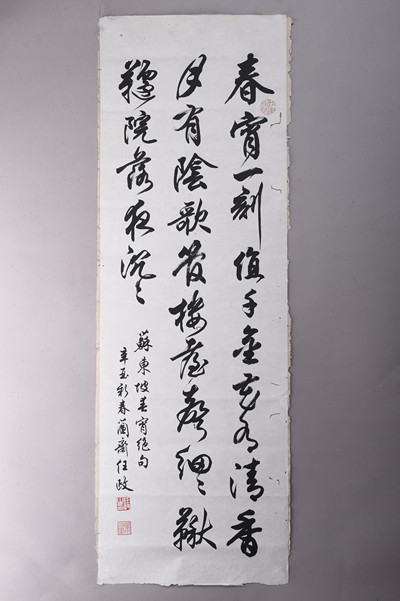 春宵一刻值千金花有清香
月有陰歌管樓臺聲細〻鞦
韆院落夜沉〻
蘇東坡春宵絕句
辛酉新春蘭齋任政